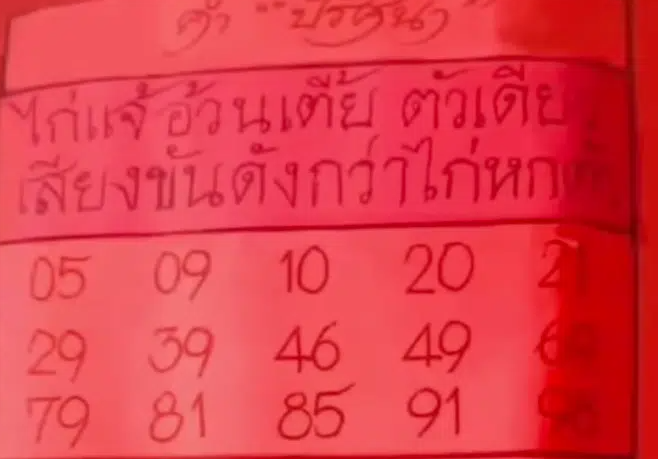 คำ "ปริศนา"
ไก่แจ้อ้วนเตี้ย ตัวเดียว
เสียงขันดังกว่าไก่หกตัว
05 09 10 20 21
29 39 46 49
79 81 85 91 98